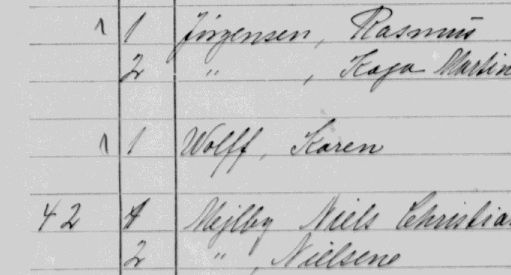 1 1 Jörgensen, Rasmus
2 " , Kaja Martin
1 1 Wolff, Karen
42 1 Mejlby Niels Christian
2 " , Nielsene